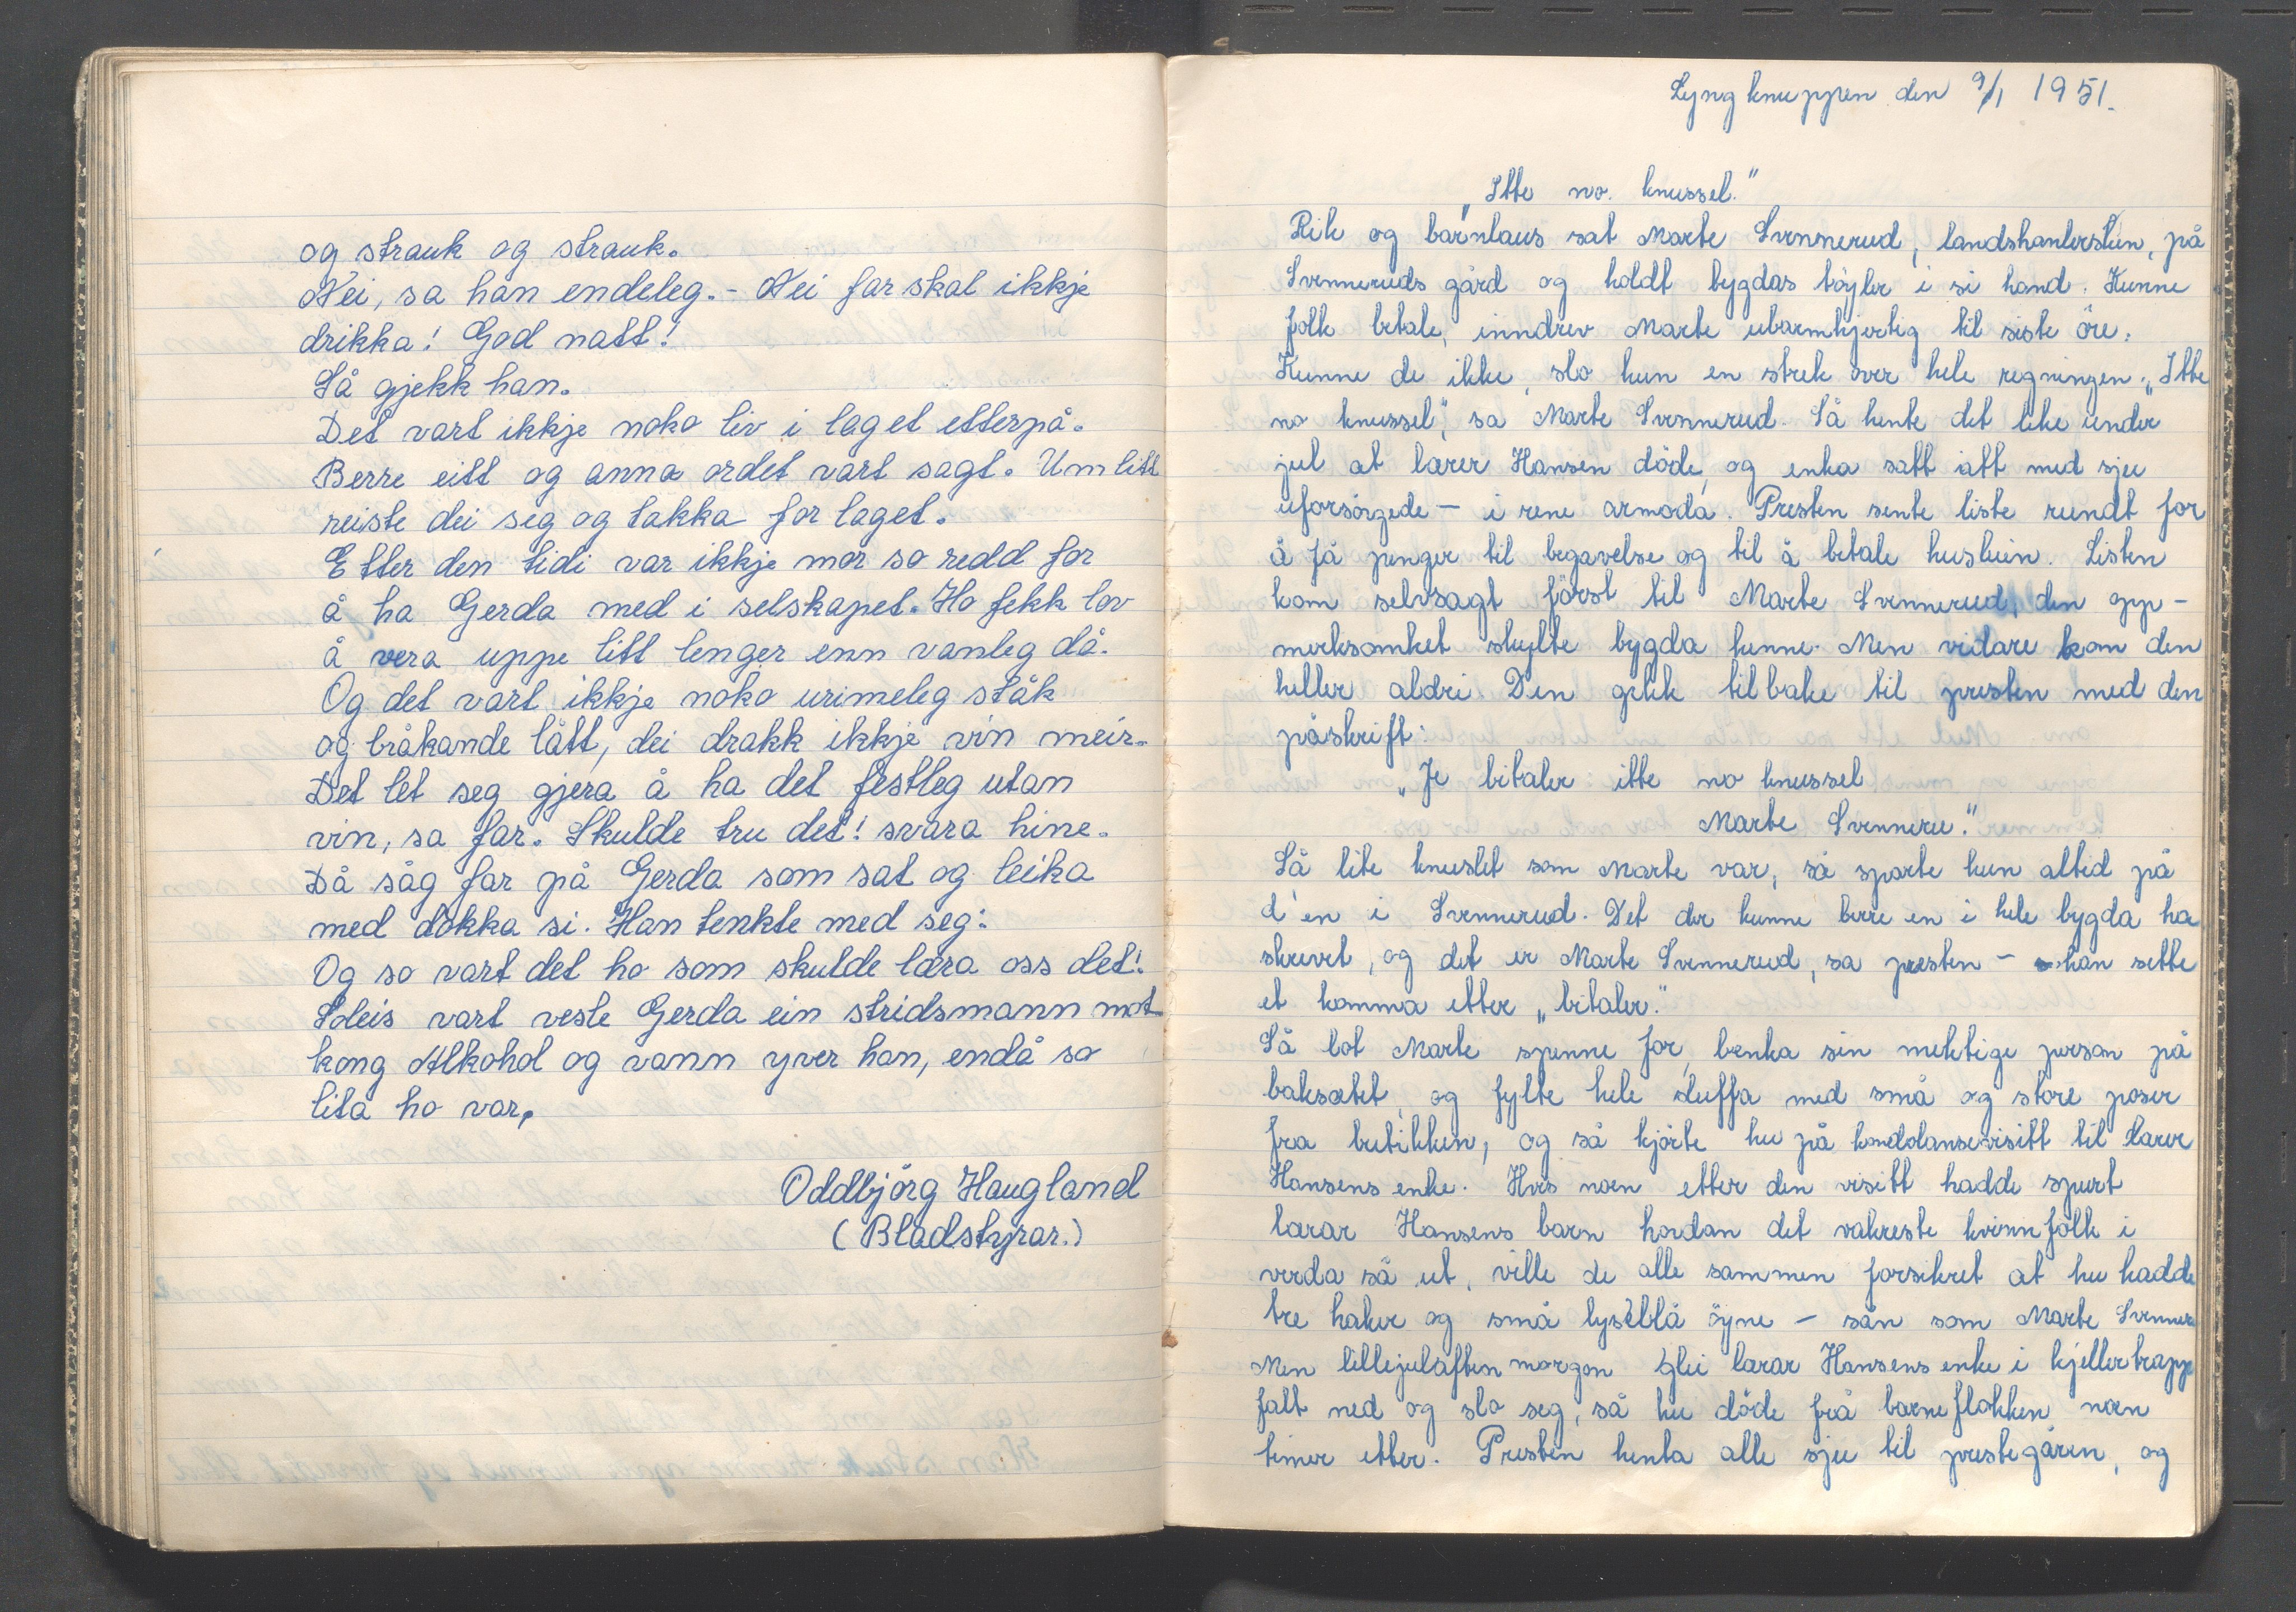 og strauk og strauk.
Nei, sa han endeleg. - Nei far skal ikkje
drikka! God natt!
Så gjekk han.
Det vart ikkje noko liv i laget etterpå.
Berre eitt og anna ordet vart sagt. Um litt
reiste dei seg og takka for laget.
Etter den tidi var ikkje mor so redd for
å ha Gerda med i selskapet. Ho fekk lov
å vera uppe litt lenger enn vanleg då.
Og det vart ikkje noko urimeleg ståk
og bråkande lått, dei drakk ikkje vin meir.
Det let seg gjera å ha det festleg utan
vin, sa far. Skulde tru det! svara hine.
Då såg far på Gerda som sat og leika
med dokka si. Han tenkte med seg:
Og so vart det ho som skulde læra oss det!
Soleis vart vesle Gerda ein stridsmann mot
kong Alkohol og vann yver han, endå so
lita ho var.
Oddbjörg Haugland
(Bladstyrar.)
Lyngknuppen den 9/1 1951.
"Itte no. knussel."
Rik og barnlaus sat Marte Svennerud, landshanlersken, på
Svenneruds gård og holdt bygdas töyler i si hand. Kunne
folk betale, inndrev Marte ubarmhjertig til siste öre.
Kunne de ikke, slo hun en strek over hele regningen. "Itte
no knussel", sa Marte Svennerud. Så hente det like under
jul at lærer Hansen döde, og enka satt att med sju
uforsörgede - i rene armoda. Presten sente liste rundt for
å få penger til begavelse og til å betale husleien. Listen
kom selvsagt först til Marte Svennerud, den opp-
merksomhet skylte bygda henne. Men vidare kom den
heller aldri. Den gikk tilbake til presten med den
påskrift:
"Je bitaler itte no knussel
Marte Svenneru."
Så lite knuslet som Marte var, så sparte hun altid på
d'en i Svennerud. Det der kunne berre en i hele bygda ha
skrevet, og det er Marte Svennerud, sa presten - han sette
et komma etter "bitaler."
Så lot Marte spenne for, benka sin mektige person på
baksætet, og fylte hele sluffa med små og store poser
fra butikken, og så kjörte hu på kondolansevisitt til lærer
Hansens enke. Hvis noen etter den visitt hadde spurt
lærar Hansens barn hordan det vakreste kvinnfolk i
verda så ut, ville de alle sammen forsikret at hu hadde
tre haker og små lyseblå öyne - sån som Marte Svenneru
Men lillejulaften morgon glei lærar Hansens enke i kjellertrapp
falt ned og slo seg, så hu döde frå barneflokken noen
timer etter. Presten henta alle sju til prestegåren, og